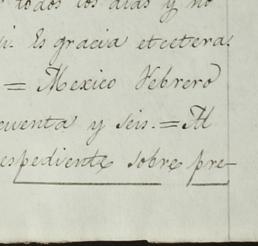 todos los dias y no
Es gracia etcetera.
= Mexico Febrero
cuenta y seis. = Al
espediente sobre pre-